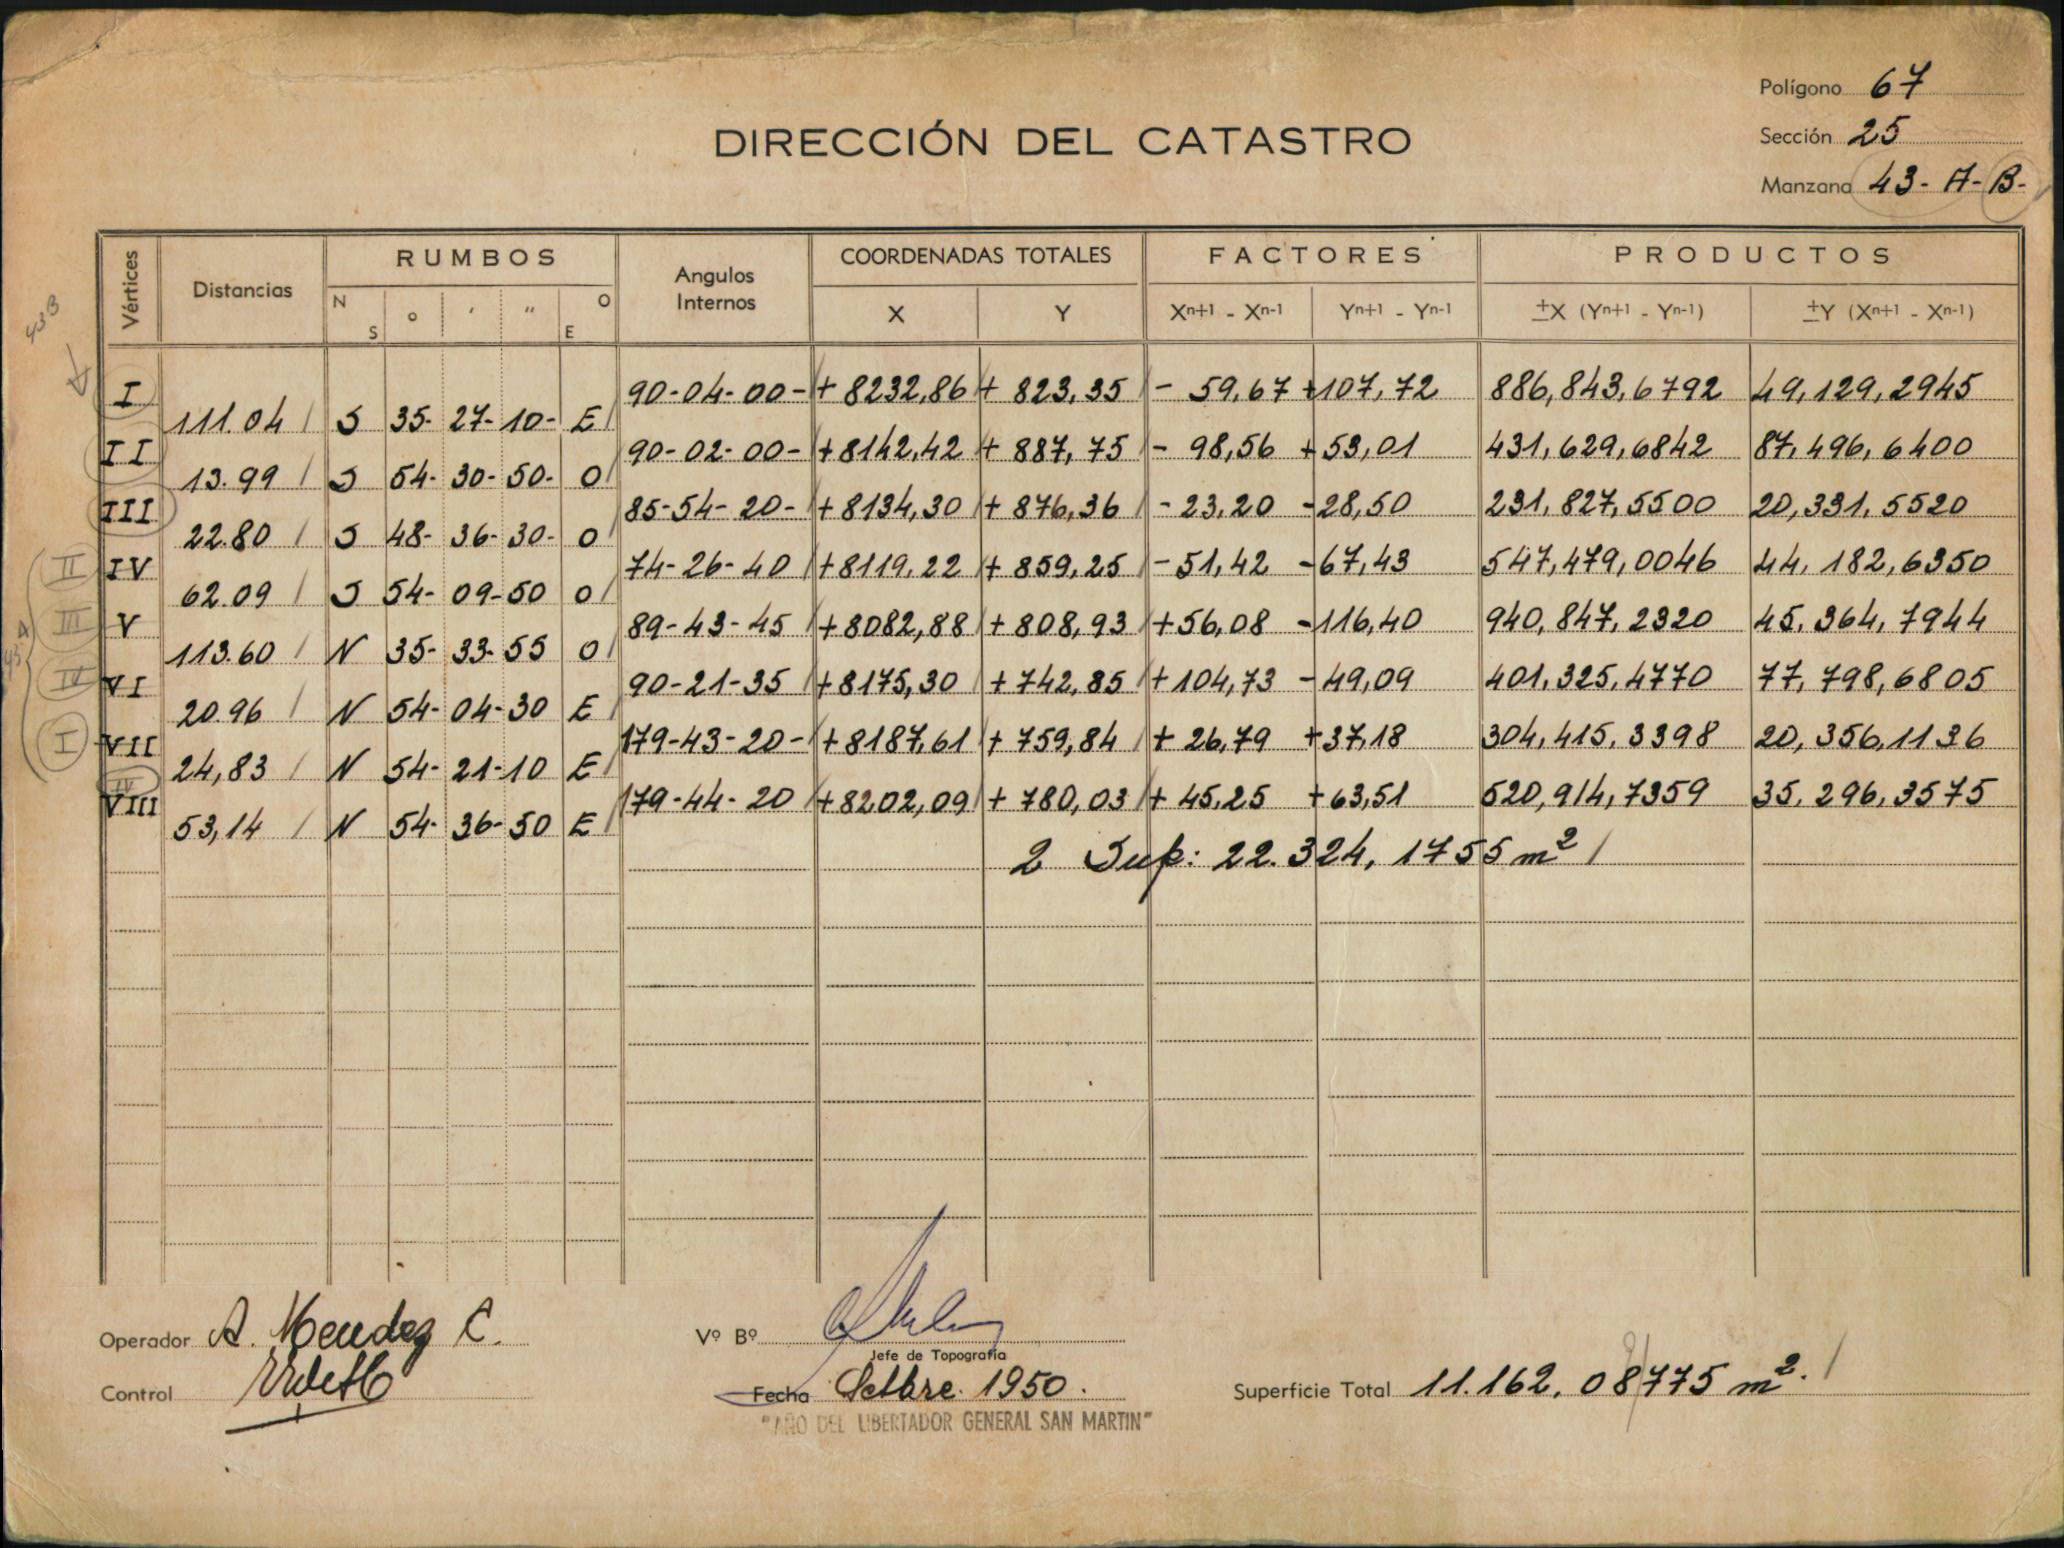 Polígono 67
DIRECCIÓN DEL CATASTRO
Sección 25
Manzana 43- A- B-
Vértices Distancias RUMBOS Angulos Internos COORDENADAS TOTALES FACTORES PRODUCTOS
N S o ' " O E X Y Xn+1 - Xn-1 Yn+1 - Yn-1 ±X (Yn+1 - Yn-1) ±Y (Xn+1 - Xn-1)
43 B
I 90-04-00- + 8232,86 + 823,35 - 59,67 +107,72 886,843,6792 49,129,2945
111.04 S 35- 27- 10- E
II 90-02-00- +8142,42 + 887,75 - 98,56 +53,01 431,629,6842 87,496,6400
13.99 S 54- 30- 50- O
III 85-54-20- +8134,30 + 876,36 -23,20 -28,50 231,827,5500 20,331,5520
22.80 S 48- 36- 30- O
II IV 74-26-40 +8119,22 + 859,25 -51,42 -67,43 547,479,0046 44,182,6350
62.09 S 54- 09-50 O
III V 89-43-45 +8082,88 + 808,93 +56,08 -116,40 940,847,2320 45,364,7944
113.60 N 35- 33-55 O
IV VI 90-21-35 +8175,30 + 742,85 +104,73 -49,09 401,325,4770 77,798,6805
20.96 N 54- 04-30 E
I VII 179-43-20- +8187,61 + 759,84 + 26,79 +37,18 304,415,3398 20,356,1136
24,83 N 54- 21-10 E
VIII 179-44-20 +8202,09 + 780,03 + 45,25 +63,51 520,914,7359 35,296,3575
53,14 N 54- 36-50 E
2 Sup: 22.324,1755 m²
Operador A. Mendez C.
Vº Bº
Jefe de Topografía
Control
Fecha Setbre. 1950.
Superficie Total 11.162,08775 m².
"AÑO DEL LIBERTADOR GENERAL SAN MARTIN"